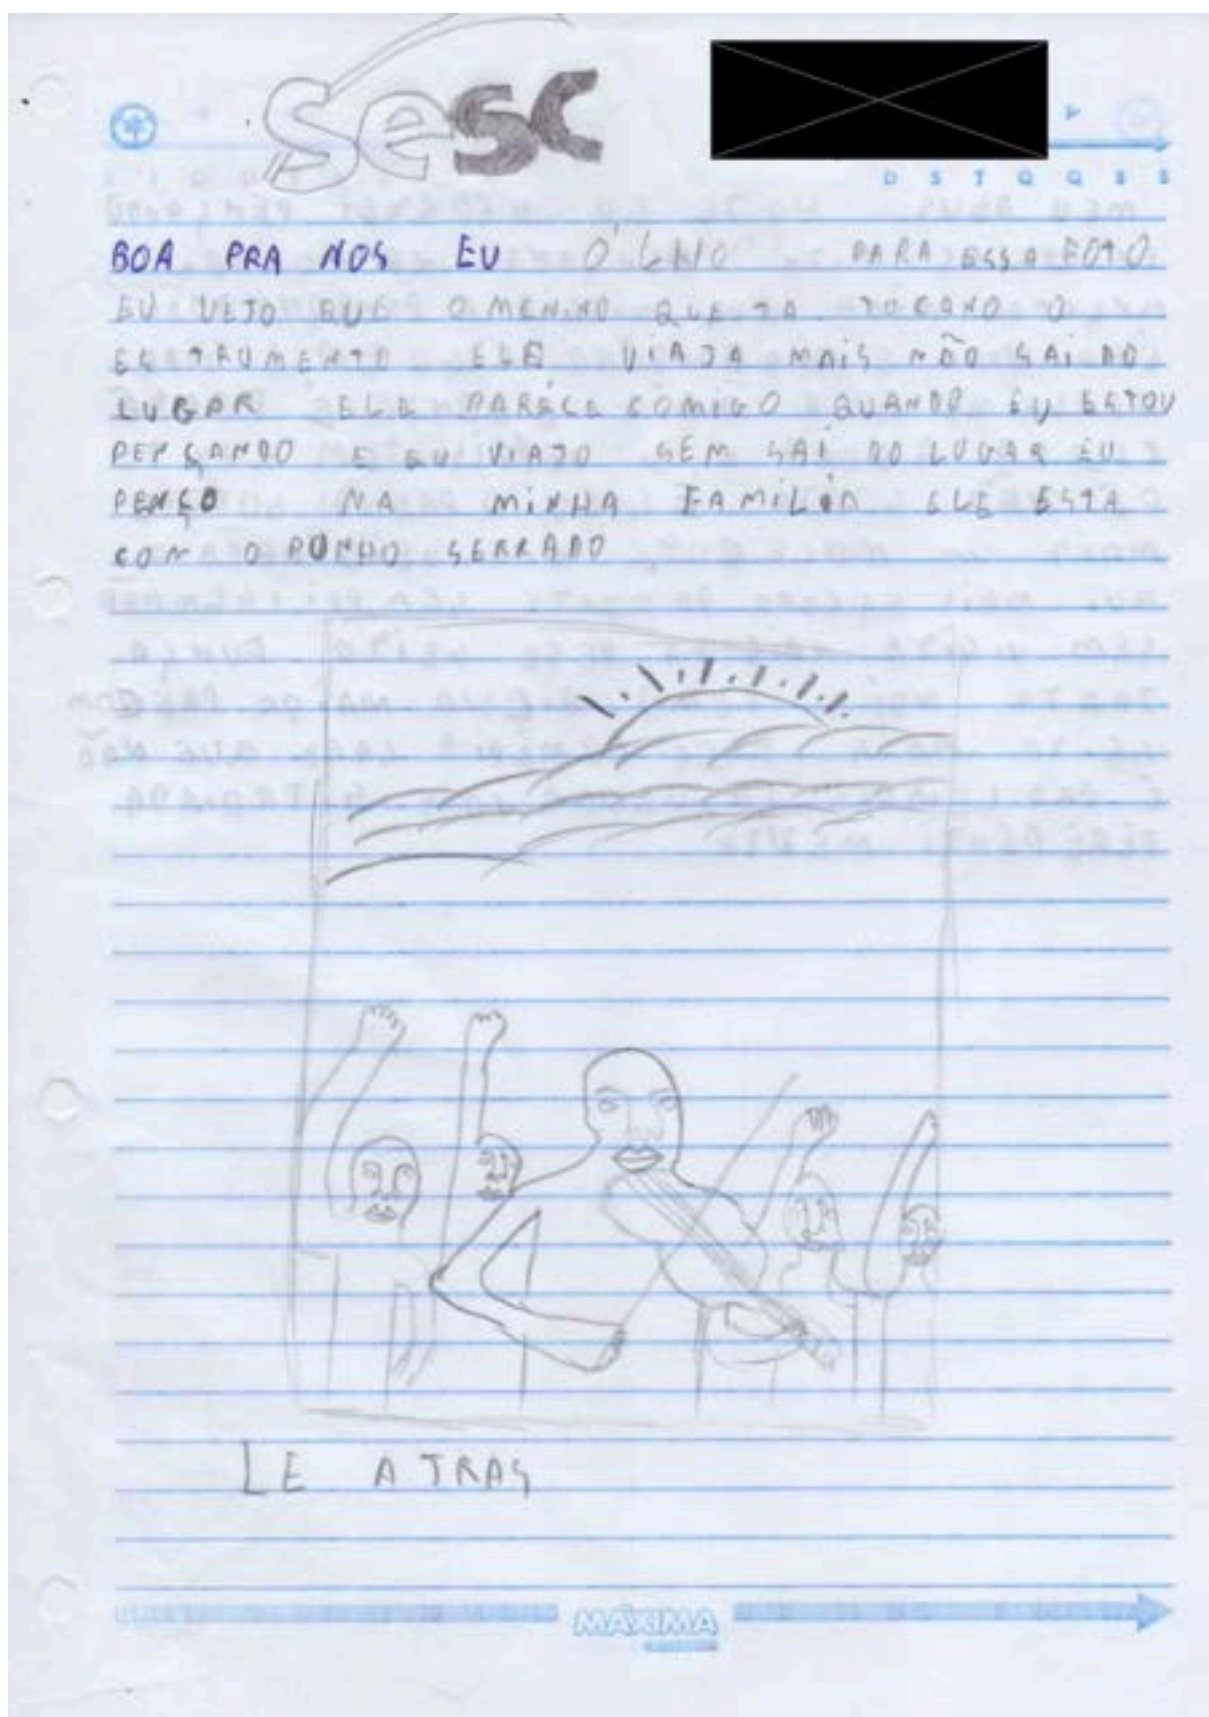 sesc
D S T Q Q S S
BOA PRA NOS EU ÓLHO PARA ESSA FOTO
EU VEJO QUE O MENINO QUE TA TOCANO O
ESTRUMENTO ELE VIAJA MAIS NÃO SAI DO
LUGAR ELE PARECE COMIGO QUANDO EU ESTOU
PENÇANDO E EU VIAJO SEM SAI DO LUGAR EU
PENÇO NA MINHA FAMILIA ELE ESTA
CON O PUNHO SERRADO
LE ATRAS
MÁXIMA